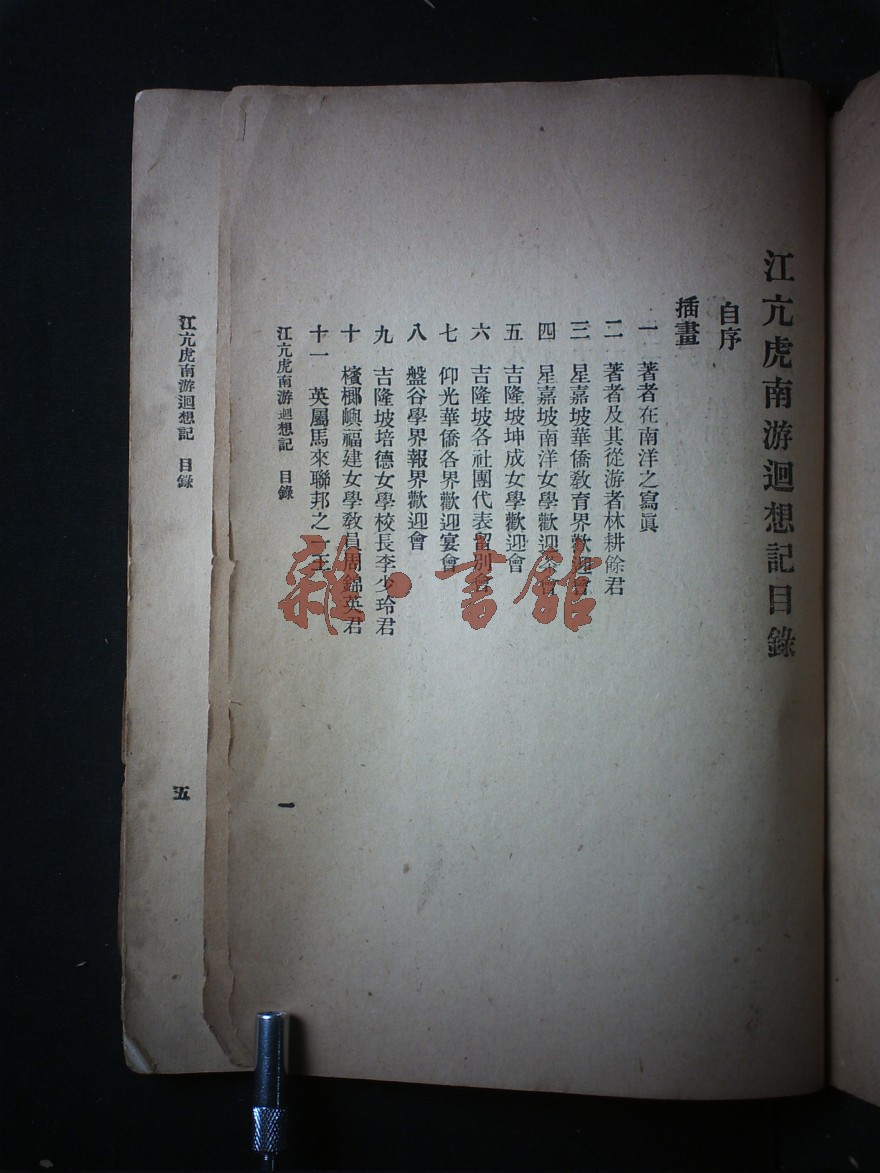 江亢虎南游迴想記目錄
自序
插畫
一 著者在南洋之寫眞
二 著者及其從游者林耕餘君
三 星嘉坡華僑教育界歡迎會
四 星嘉坡南洋女學歡迎茶會
五 吉隆坡坤成女學歡迎會
六 吉隆坡各社團代表留別會
七 仰光華僑各界歡迎宴會
八 盤谷學界報界歡迎會
九 吉隆坡培德女學校長李少玲君
十 檳榔嶼福建女學教員周錦英君
十一 英屬馬來聯邦之一王
江亢虎南游迴想記 目錄
一
江亢虎南游迴想記 目錄
五
雜·書館